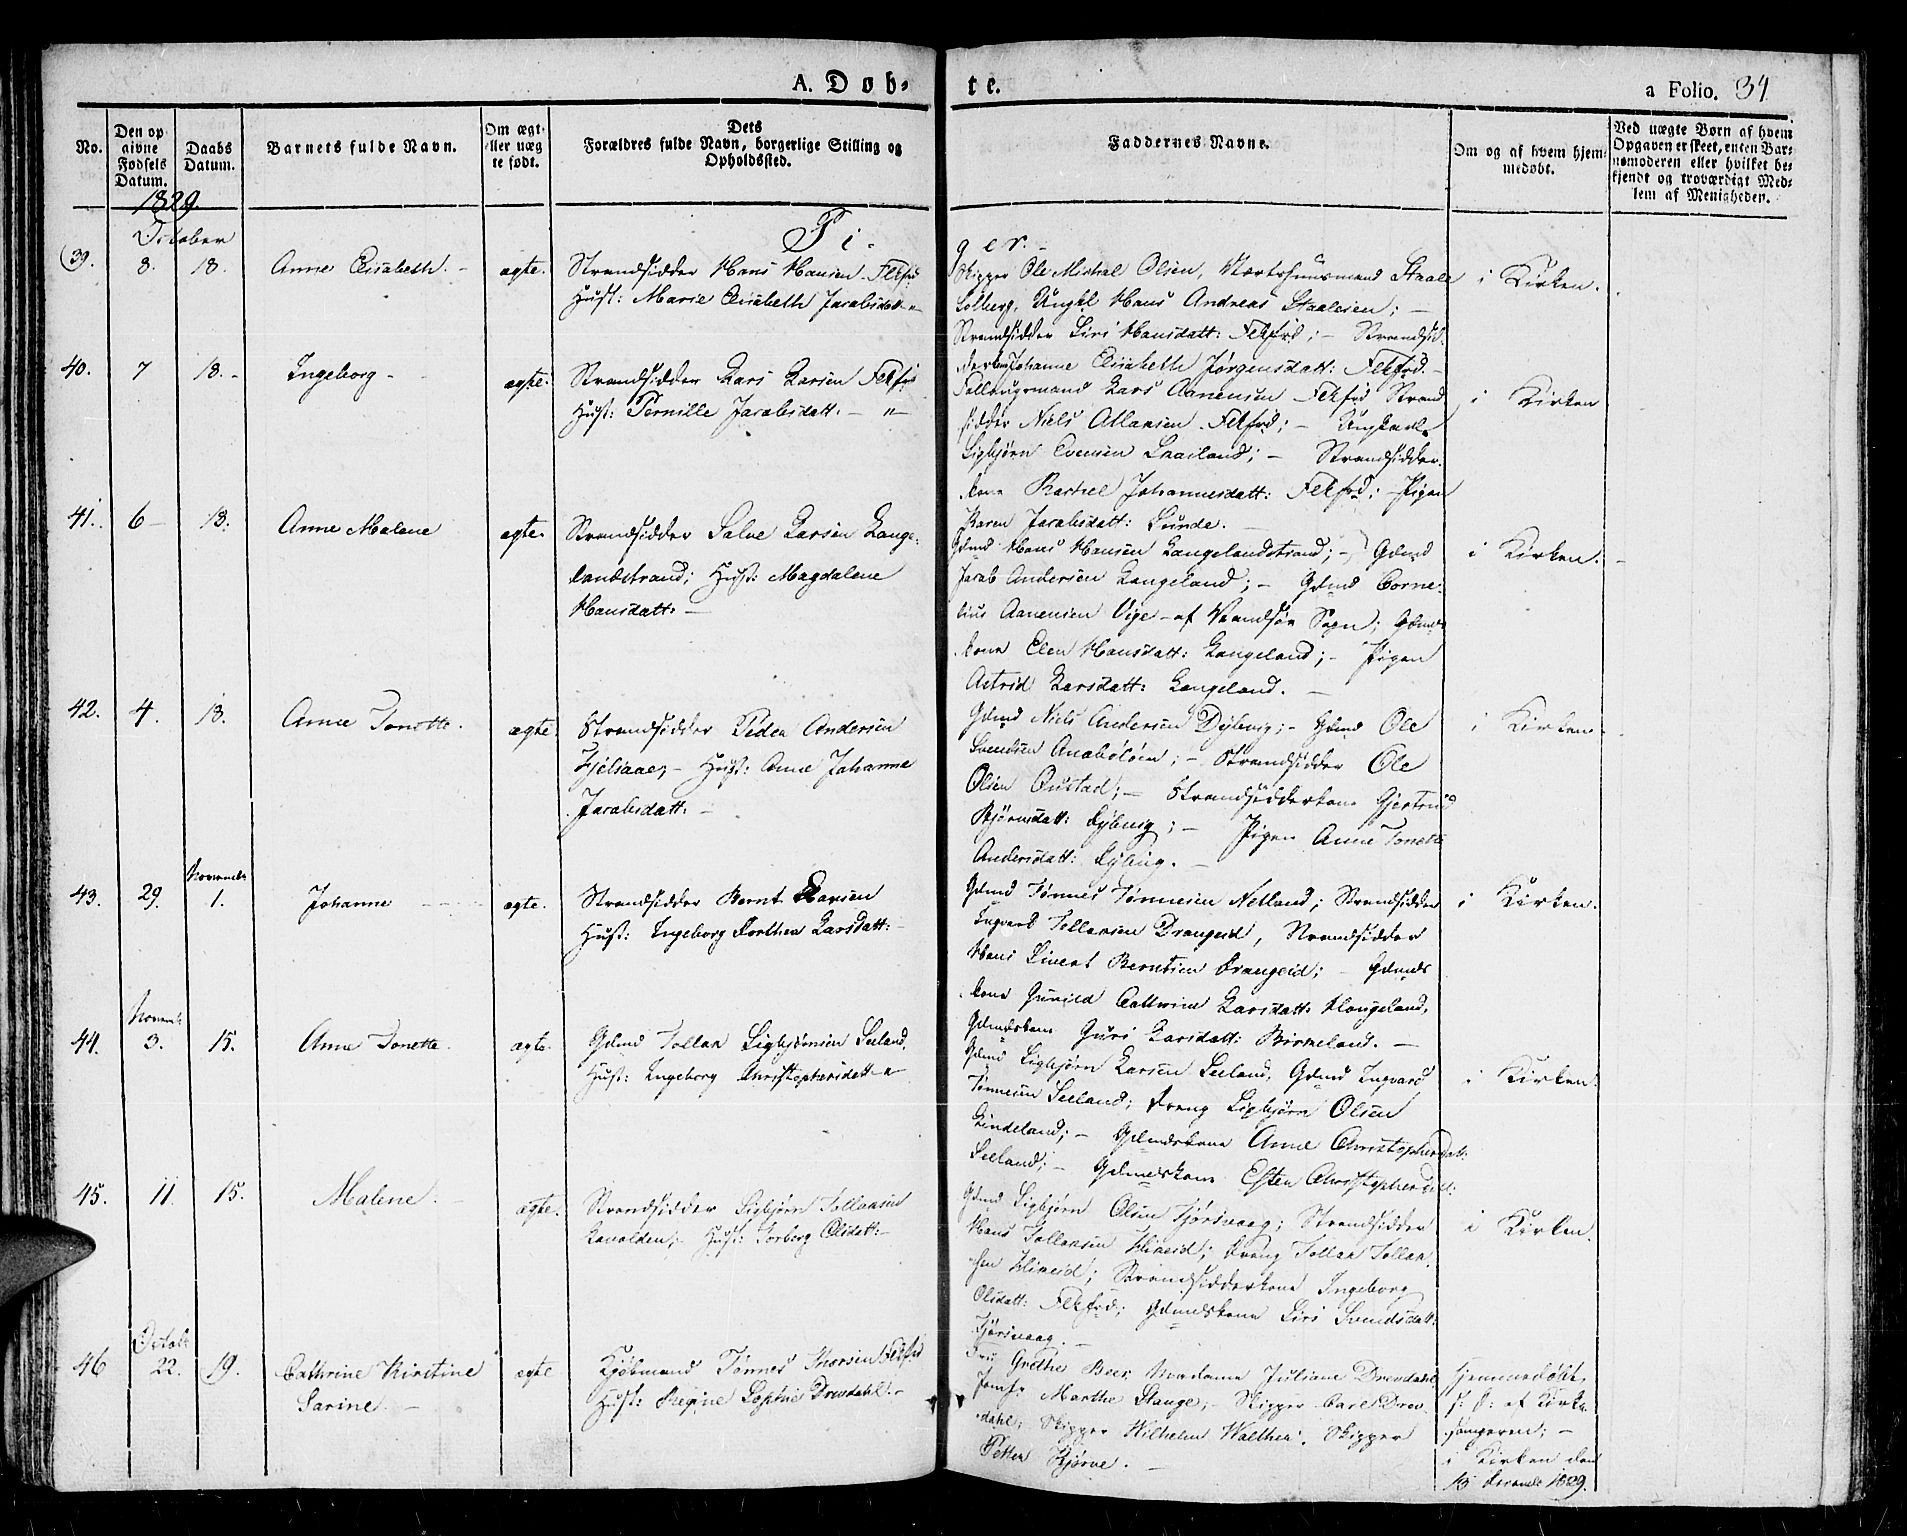 A. Døb-
te.
a Folio. 34
No.
Den op
givne
Fødsels
Datum.
Daabs
Datum.
Barnets fulde Navn.
Om ægt-
eller uæg
te født.
Dets
Forældres fulde Navn, borgerlige Stilling og
Opholdssted.
Faddernes Navne.
Om og af hvem hjem-
medøbt.
Ved uægte Børn af hvem
Opgaven er skeet, enten Bar-
nemoderen eller hvilket be-
kjendt og troværdigt Med-
lem af Menigheden.
1829.
October
Pi-
ger.
39. 8. 18. Anne Elisabeth. ægte. Strandsidder Hans Hansen Flkfrd
Hust: Marie Elisabeth Jacobsdatt
Skipper Ole Michal Olsen, Staale
Solberg, Ungkl Hans Andreas Staalesen; —
Strandsidder Siri Hansdatt: Flkfrd; — Strandsid-
derkone Johanne Elisabeth Jørgensdatt: Flkfrd. —
i Kirken.
40. 7 18. Ingeborg ægte. Strandsidder Lars Larsen Flkfrd
Hust: Pernille Jacobsdatt. — " —
Lars Aanensen Flkfrd Strand
sidder Niels Atlaksen Flkfrd; — Ungkarl
Sigbjørn Evensen; — Strandsidder-
kone Rachel Johannesdatt: Flkfrd; — Pigen
Karen Jacobsdatt: Sunde.
i Kirken
41. 6 18. Anne Malene ægte. Strandsidder Salve Larsen Lange-
landstrand; Hust: Magdalene
Hansdatt: —
Gdmd Hans Hansen Langelandstrand; — Gdmd
Jacob Andersen Langeland; — Gdmd Corne-
lius Aanensen Vige — af Vandsøe Sogn; Gdmds
kone Elen Hansdatt: Langeland; — Pigen
Astrid Larsdatt: Langeland. —
i Kirken.
42. 4. 18. Anne Tonette. ægte. Strandsidder Peder Andersen
Hust: Anne Johanne
Jacobsdatt: —
Gdmd Niels Andersen Dybvig; — Gdmd Ole
Svendsen; — Strandsidder Ole
Olsen; — Strandsidderkone Gjertrud
Bjørnsdatt: Dybvig; — Pigen Anne Tonette
Andersdatt: Dybvig. —
i Kirken.
43. 29. Novembr 1. Johanne ægte. Strandsidder Bernt Hansen
Hust: Ingeborg Dorthea Larsdatt: —
Gdmd Tønnes Tønnesen Netland; Strandsidder
Ingvard Tollaksen Drangeid, Strandsidder
Hans Sivert Berntsen Drangeid; — Gdmds
kone Gunild Cathrine Larsdatt: Haugeland,
Gdmdskone Guri Larsdatt: Birkeland. —
i Kirken.
44. Novembr 3. 15. Anne Tonette. ægte. Gdmd Tollak Sigbjørnsen Seeland,
Hust: Ingeborg Christophersdatt
Gdmd Sigbjørn Larsen Seeland, Gdmd Ingvard
Tønnesen Seeland; Dreng Sigbjørn Olsen
Lindeland; — Gdmdskone Anne Christophersdatt:
Seeland; — Gdmdskone Esten Christophersdatt:
i Kirken.
45. 11. 15. Malene. ægte. Strandsidder Sigbjørn Tollaksen
Hust: Torborg Olsdatt: —
Gdmd Sigbjørn Olsen Fjørsvaag; Strandsidder
Hans Tollaksen; Dreng Tollak Tollak-
sen; Strandsidderkone Ingeborg
Olsdatt: Flkfrd; Gdmdskone Siri Svendsdatt:
Fjørsvaag. —
i Kirken.
46 Octobr 22. 19. Cathrine Kirstine
Sarine. — ægte Kjøbmand Tønnes Thorsen Flkfrd
Hust: Regine Sophie Drevdahl. —
Fru Grethe Beer, Madame Juliane Drevdahl,
Jomfr Marthe Stange; — Skipper Carl Drev-
dahl; Skipper Wilhelm Walther, Skipper
Petter Bjørve. —
hjemmedøbt,
s: D: af Kirke
sangeren; —
i Kirken den
13 Decembr 1829.